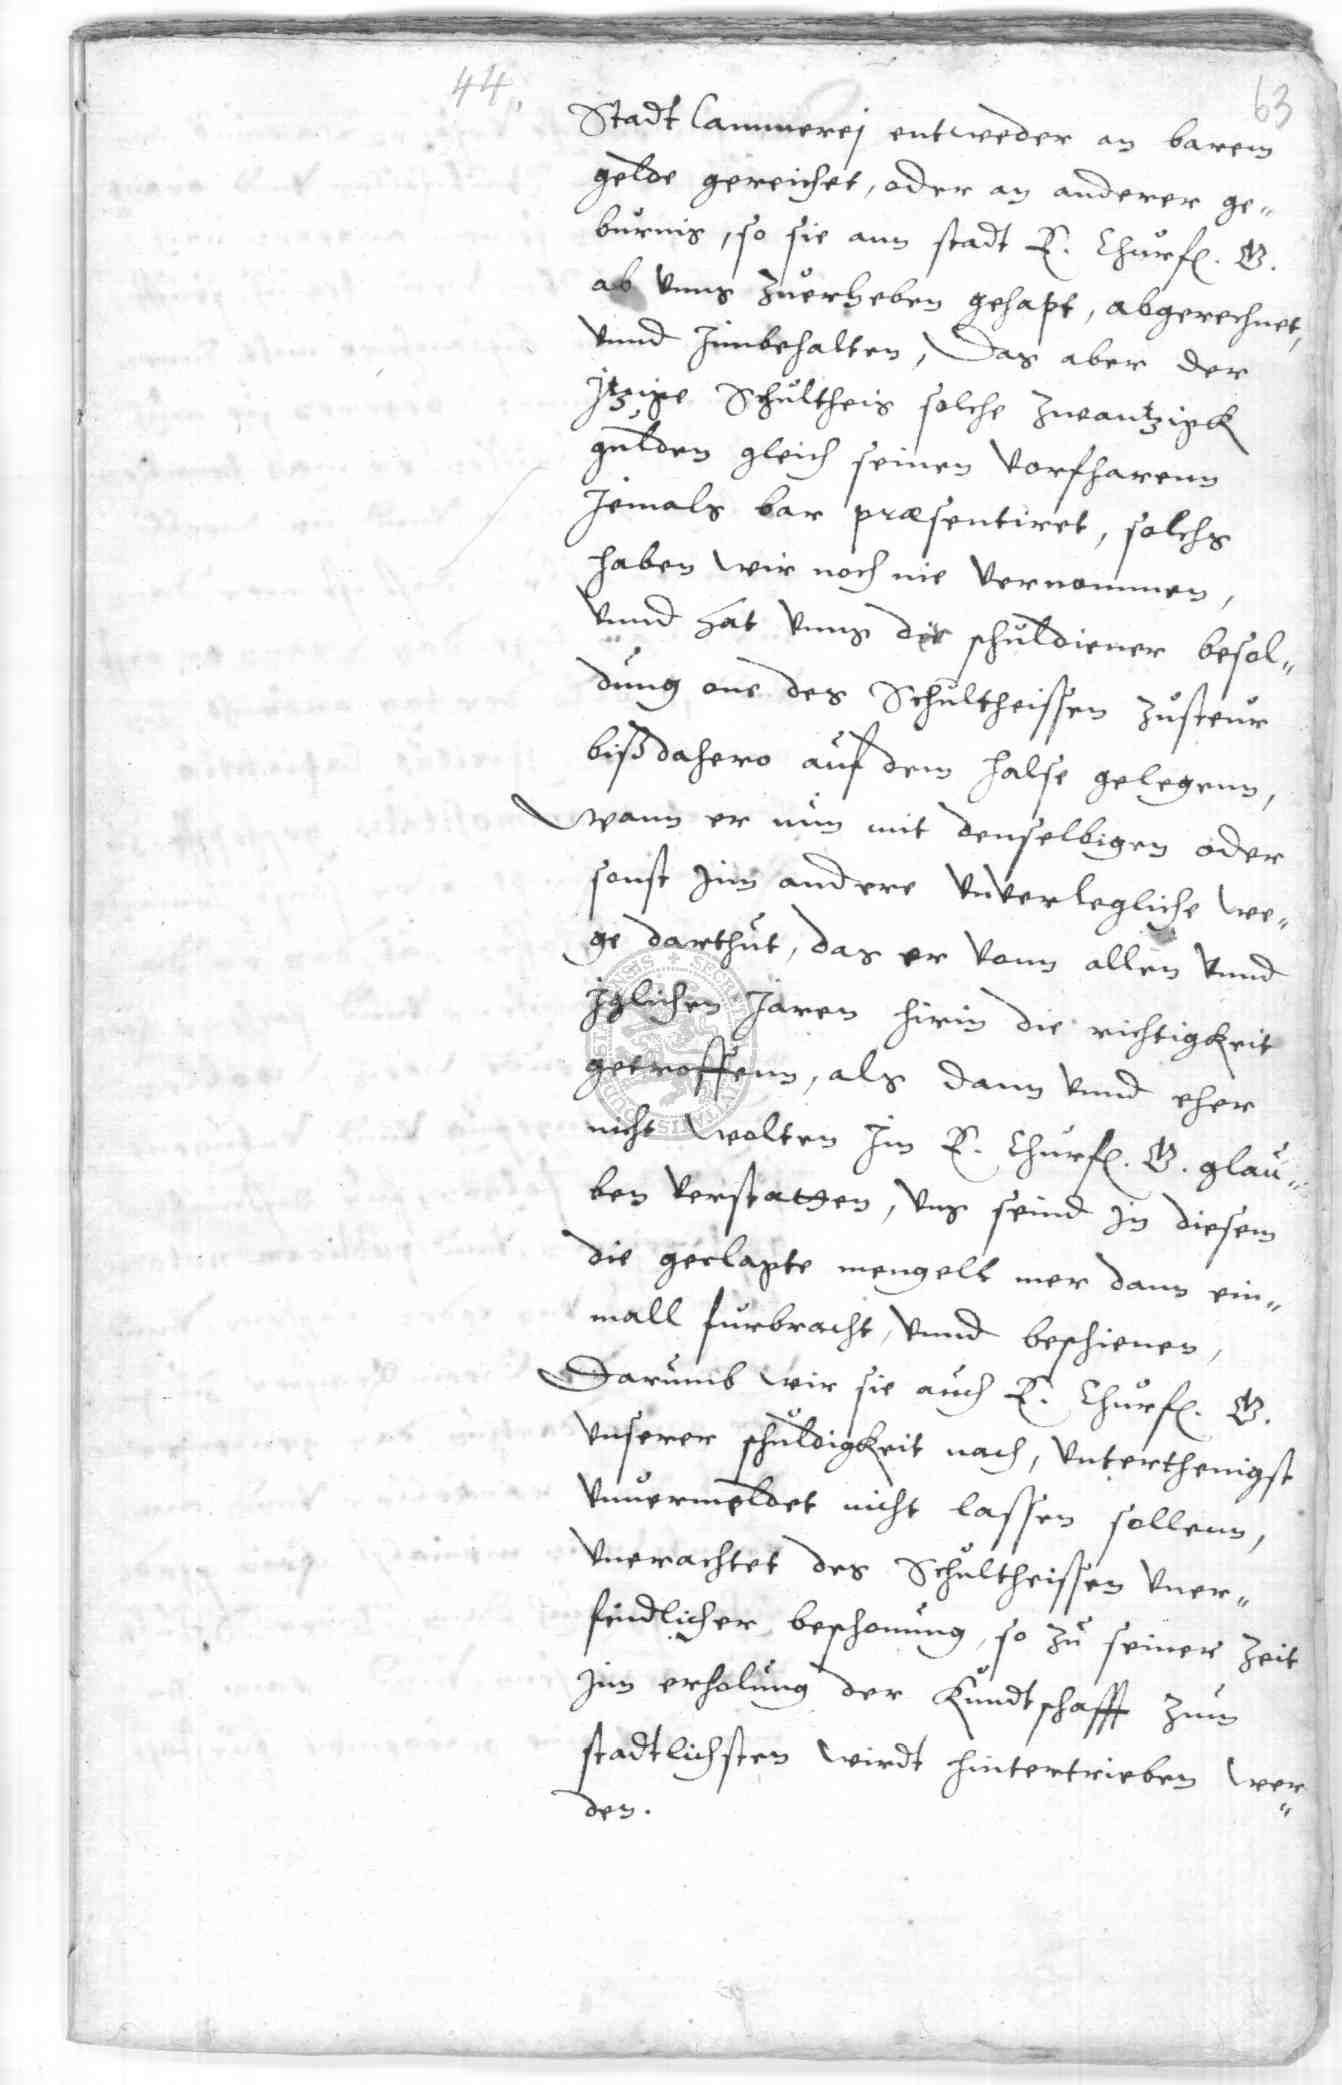 44.
63
Stadt Cammerej entweder an barem
gelde gereichet, oder an anderer ge-
burnis, so sie ann stadt E. Churf. G.
ab vnns zuerheben gehapt, abgerechnet,
vnnd Innbehalten, Das aber der
Jtzige Schultheis solche zweantzigk
gulden gleich seinen vorfharenn
Jemals bar præsentiret, solchs
haben wir noch nie vernommen,
vnnd hat vnns der schuldiener besol-
dung one des Schultheissen zusteur
bißdahero auf dem halse gelegenn,
Wann er nun mit denselbigen oder
sonst Inn andere vnverlegliche we-
ge darthut, das er vonn allen vnnd
Jglichen Jaren hirin die richtigkeit
getroffenn, als dann vnnd eher
nicht wolten Im E. Churf. G. glau-
ben verstatten, vns seind in diesem
die geclagte mengell mer dann ein-
mall furbracht, vnnd beschienen,
Darumb wir sie auch E. Churf. G.
vnserer schuldigkeit nach, vnterthenigst
vnuermeldet nicht lassen sollenn,
vnerachtet des Schultheissen vner-
findlicher beschonung, so zu seiner zeit
Inn erholung der Kundtschafft zum
stadtlichsten wirdt hintertrieben wer-
den.